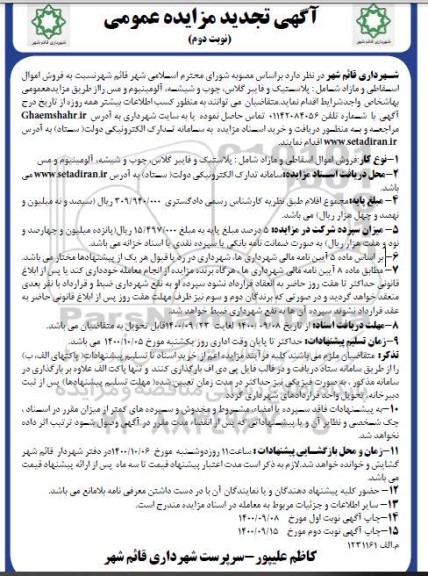 آگهی تجدید مزایده عمومی
(نوبت دوم)
شهرداری قائم شهر در نظر دارد براساس مصوبه شورای محترم اسلامی شهر قائم شهرنسبت به فروش اموال
اسقاطی و مازاد شامل : پلاستیک و فایبر گلاس، چوب و شیشه، آلومینیوم و مس رااز طریق مزایدهعمومی
بهاشخاص واجدشرایط اقدام نماید.متقاضیان می توانند به منظور کسب اطلاعات بیشتر همه روزه از تاریخ درج
آگهی با شماره تلفن ۰۱۱۴۲۰۸۴۰۵۶ تماس حاصل نموده یا به سایت شهرداری به آدرس Ghaemshahr.ir
مراجعه و به منظور دریافت و خرید اسناد مزایده به سامانه تدارک الکترونیکی دولت( ستاد) به آدرس
www.setadiran.ir اقدام نمایند.
۱-نوع کار:فروش اموال اسقاطی و مازاد شامل : پلاستیک و فایبر گلاس، چوب و شیشه، آلومینیوم و مس
۲-محل دریافت اسناد مزایده:سامانه تدارک الکترونیکی دولت( ستاد) به آدرس www.setadiran.ir می
باشد.
۴- مبلغ پایه:مجموع اقلام طبق نظریه کارشناس رسمی دادگستری ۳۰۹/۹۴۰/۰۰۰ ریال (سیصد و نه میلیون و
نهصد و چهل هزار ریال) می باشد.
۵- میزان سپرده شرکت در مزایده: ۵ درصد مبلغ پایه به مبلغ ۱۵/۴۹۷/۰۰۰ ریال(پانزده میلیون و چهارصد و
نود و هفت هزار ریال) به صورت ضمانت نامه بانکی یا سپرده نقدی یا اسناد خزانه می باشد.
۶-بر اساس ماده ۵ آیین نامه مالی شهرداری ها، شهرداری در رد یا قبول هر یک از پیشنهادها مختار می باشد.
۷- مطابق ماده ۸ آیین نامه مالی شهرداری ها ، هرگاه برنده مزایده از انجام معامله خودداری کند یا پس از ابلاغ
قانونی حداکثر تا هفت روز حاضر به انعقاد قرارداد نشود سپرده او به نفع شهرداری ضبط و قرارداد با نفر بعدی
منعقد خواهد گردید و در صورتی که برندگان دوم و سوم نیز ظرف مهلت هفت روز پس از ابلاغ قانونی حاضر به
عقد قرارداد نشوند سپرده آن ها به نفع شهرداری ضبط خواهد شد.
۸-مهلت دریافت اسناد: از تاریخ ۱۴۰۰/۰۹/۰۸ لغایت ۱۴۰۰/۰۹/۲۳قابل تحویل به متقاضیان می باشد.
۹-زمان تسلیم پیشنهادات: حداکثر تا پایان وقت اداری روز یکشنبه مورخ ۱۴۰۰/۱۰/۰۵ می باشد.
تذکر: متقاضیان ملزم می باشند کلیه فرآیند مزایده اعم از خرید اسناد تا تسلیم پیشنهادات( پاکتهای الف، ب)
را از طریق سامانه ستاد دریافت و در قالب فایل پی دی اف بارگذاری کنند و تنها پاکت الف علاوه بر بارگذاری در
سامانه مذکور ، به صورت فیزیکی نیز حداکثر در مدت زمان تعیین شده( مهلت تسلیم پیشنهادها) پس از ثبت
دبیرخانه، تحویل واحد قراردادهای شهرداری گردد.
۱۰-به پیشنهادات فاقد سپرده یا امضاء مشروط و مخدوش و سپرده های کمتر از میزان مقرر در اسناد ،
چک شخصی و نظایر آن و یا پیشنهاداتی که پس از انقضاء مدت مقرر در آگهی وصول شود ترتیب اثر داده
نخواهد شد.
۱۱-زمان و محل بازگشایی پیشنهادات : ساعت۱۱ روزدوشنبه مورخ ۱۴۰۰/۱۰/۰۶در دفتر شهردار قائم شهر
گشایش و خوانده خواهد شد.لازم به ذکر است مدت اعتبار پیشنهاد قیمت تا سه ماه پس از ارائه پیشنهاد قیمت
می باشد.
۱۲- حضور کلیه پیشنهاد دهندگان و یا نمایندگان آن با در دست داشتن معرفی نامه بلامانع می باشد.
۱۳- سایر اطلاعات و جزئیات مربوط به معامله در اسناد مزایده مندرج است.
۱۴-چاپ آگهی نوبت اول مورخ ۱۴۰۰/۰۹/۰۸
۱۵-چاپ آگهی نوبت دوم مورخ ۱۴۰۰/۰۹/۱۵
م.الف ۱۲۳۱۱۶۱
کاظم علیپور- سرپرست شهرداری قائم شهر